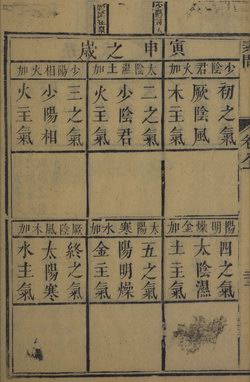 寅申之歲
少陰君火加
初之氣
厥陰風
木主氣
太陰濕土加
二之氣
少陰君
火主氣
少陽相火加
三之氣
少陽相
火主氣
陽明燥金加
四之氣
太陰濕
土主氣
太陽寒水加
五之氣
陽明燥
金主氣
厥陰風木加
終之氣
太陽寒
水主氣